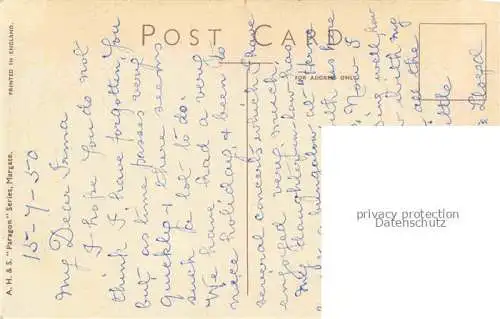 POST CARD
FOR ADDRESS ONLY
PRINTED IN ENGLAND.
A. H. & S. "Paragon" Series, Margate.
15-7-50
My Dear Irma
I hope you do not
think I have forgotten you
but as time passes very
quickly & there seems
such a lot to do.
We have had a very
nice holiday, & been to
several concerts which I have
enjoyed very much
My daughter in law has
a bungalow at
Now I
well, how
with my
all the
privacy protection
Datenschutz